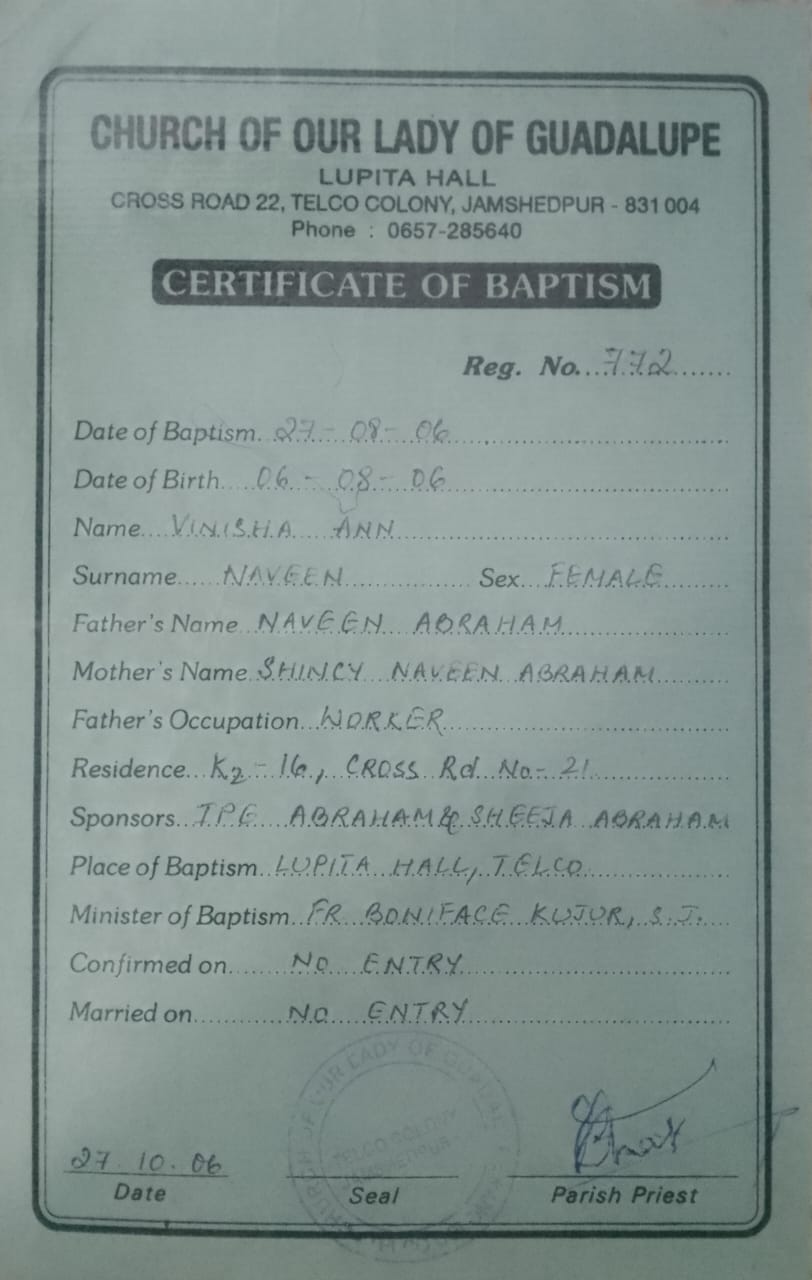 CHURCH OF OUR LADY OF GUADALUPE
LUPITA HALL
CROSS ROAD 22, TELCO COLONY, JAMSHEDPUR - 831 004
Phone : 0657-285640
CERTIFICATE OF BAPTISM
Reg. No. 772
Date of Baptism. 27 - 08 - 06
Date of Birth 06 - 08 - 06
Name VINISHA ANN
Surname NAVEEN Sex FEMALE
Father's Name NAVEEN ABRAHAM
Mother's Name SHINCY NAVEEN ABRAHAM
Father's Occupation WORKER
Residence K2 - 16, CROSS Rd No- 21
Sponsors T.P.E ABRAHAM & SHEEJA ABRAHAM
Place of Baptism LUPITA HALL, TELCO
Minister of Baptism FR BONIFACE KUJUR, S.J.
Confirmed on NO ENTRY
Married on NO ENTRY
CHURCH OF OUR LADY OF
TELCO COLONY
JAMSHEDPUR
27.10.06
Date Seal Parish Priest